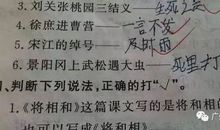 3. 刘关张桃园三结义——生死之交
4. 徐庶进曹营——一言不发
5. 宋江的绰号——及时雨
6. 景阳冈上武松遇大虫——死里打
、判断下列说法,正确的打“√”。
1. 《将相和》这篇课文写的是将相和
也可以写成《将和相》